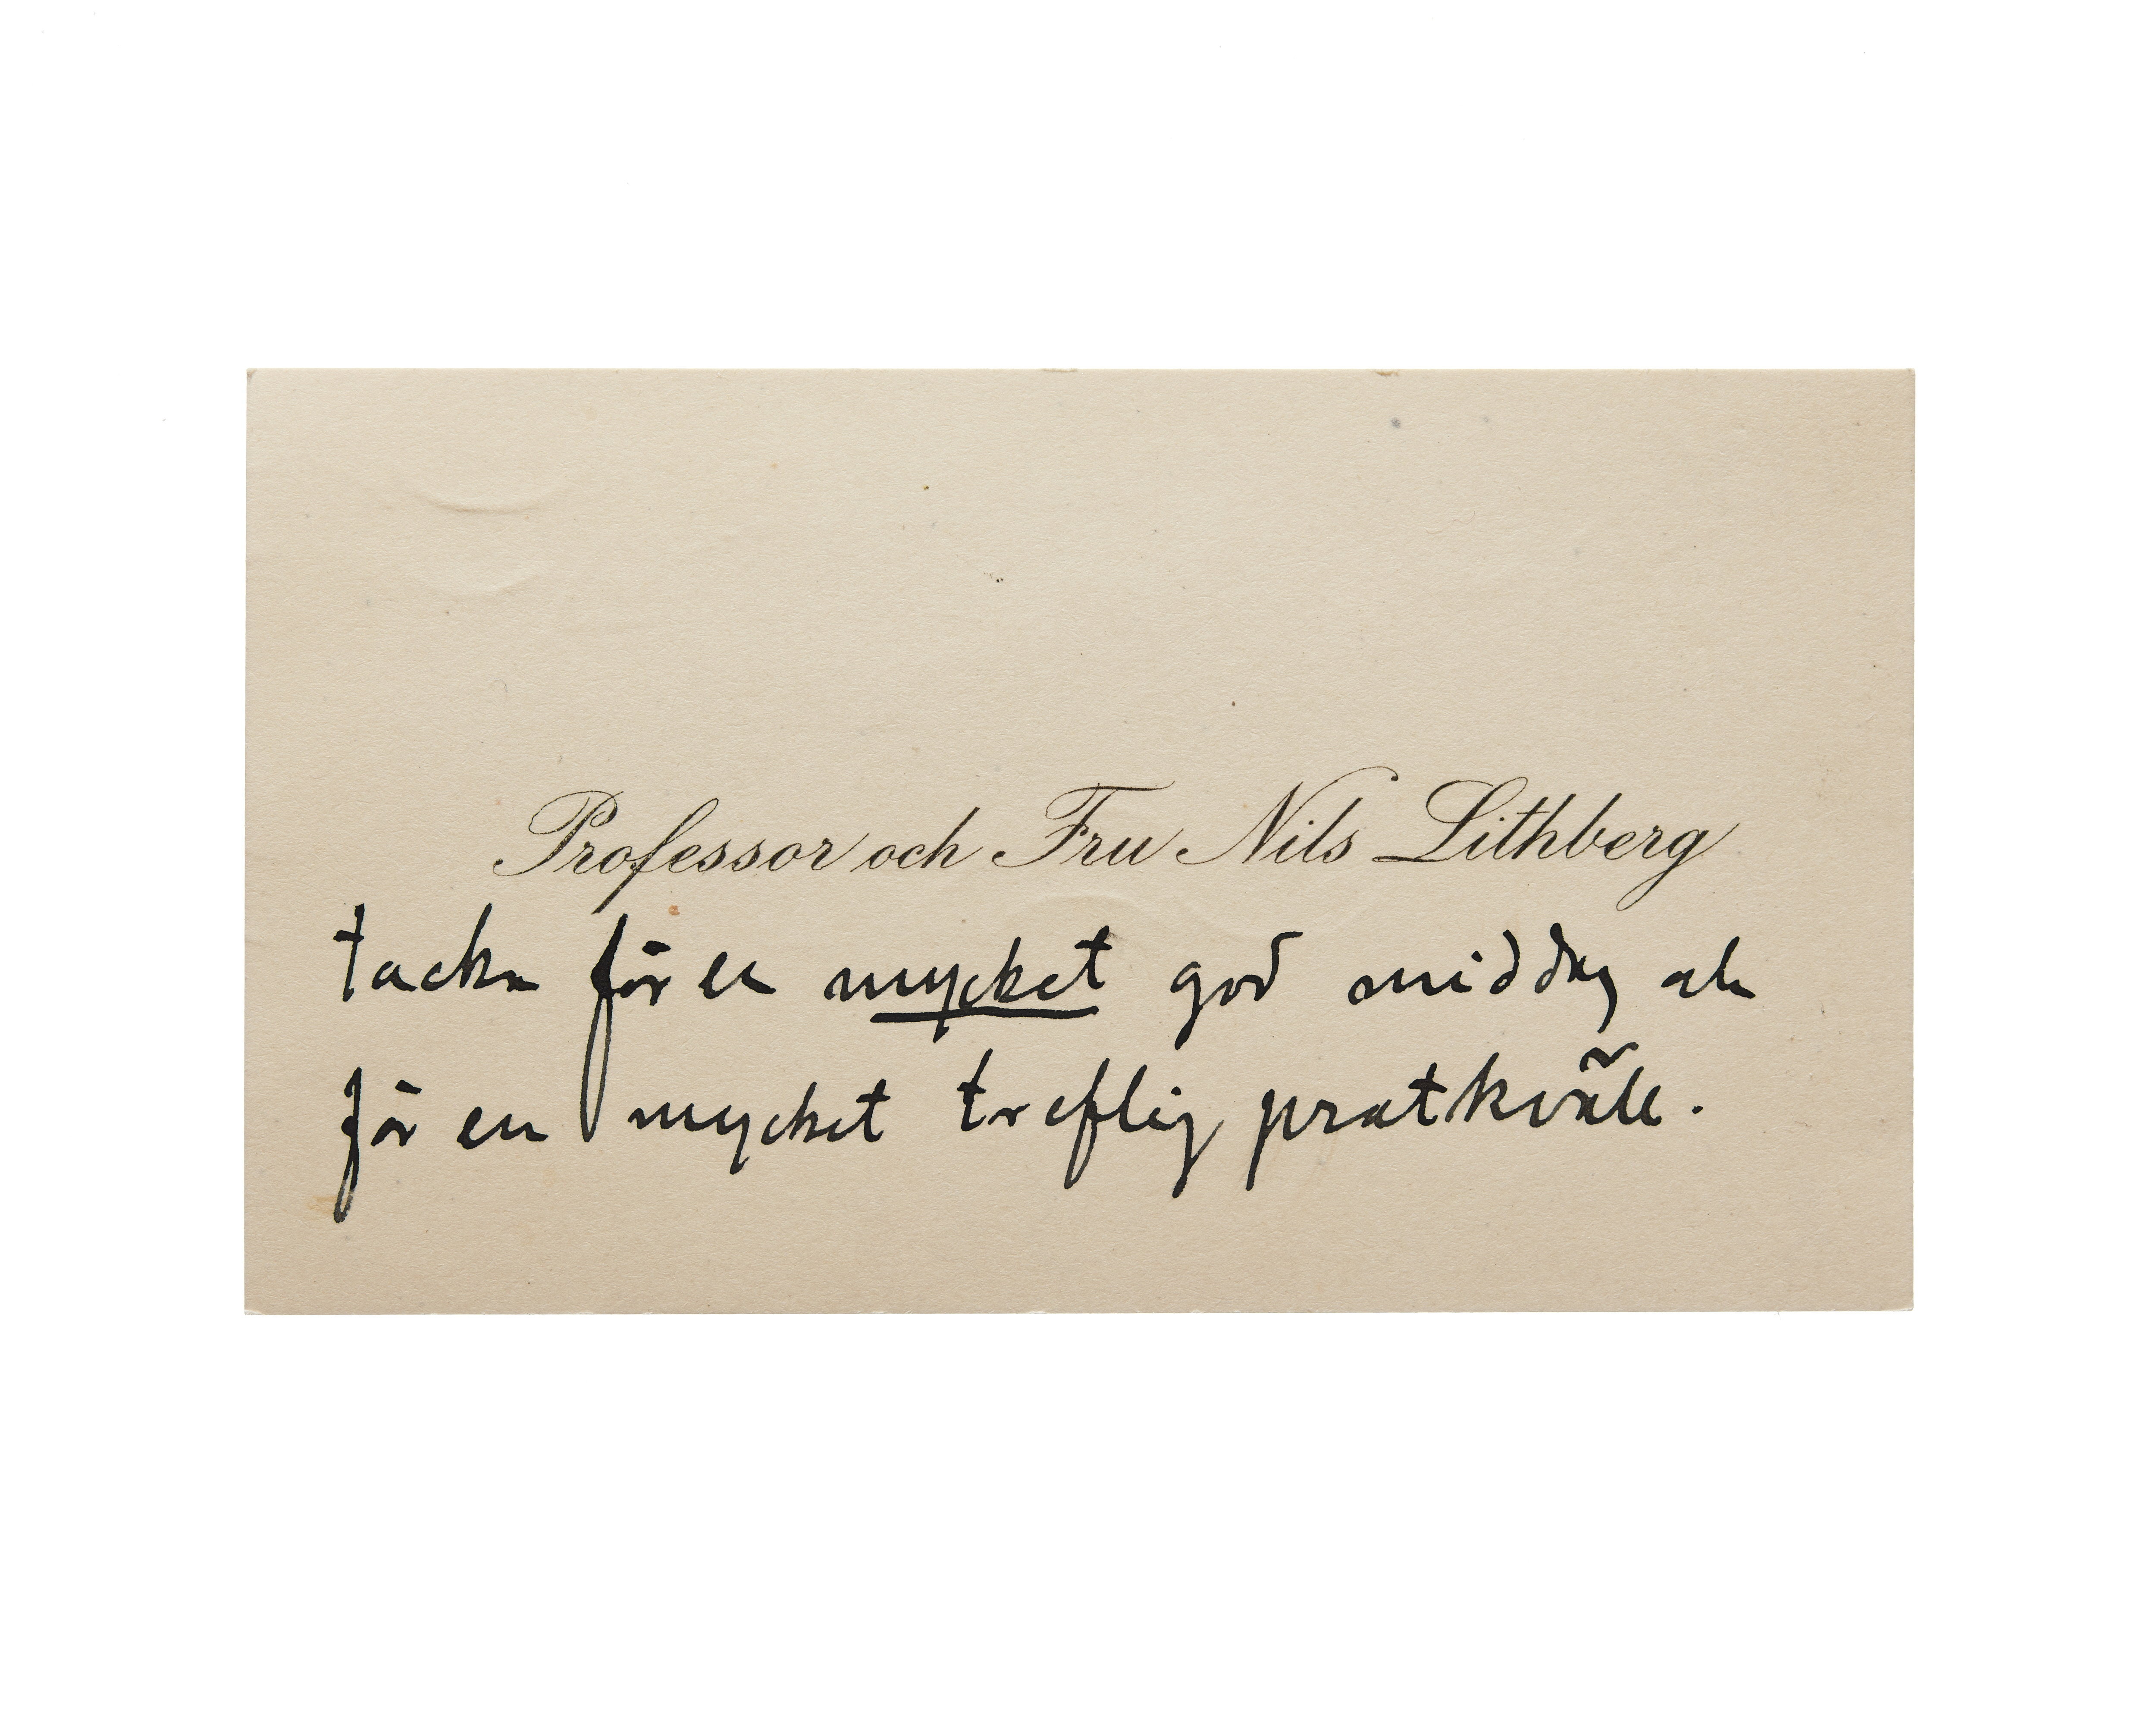 Professor och Fru Nils Lithberg
tacka för en mycket god middag och
för en mycket treflig pratkväll.